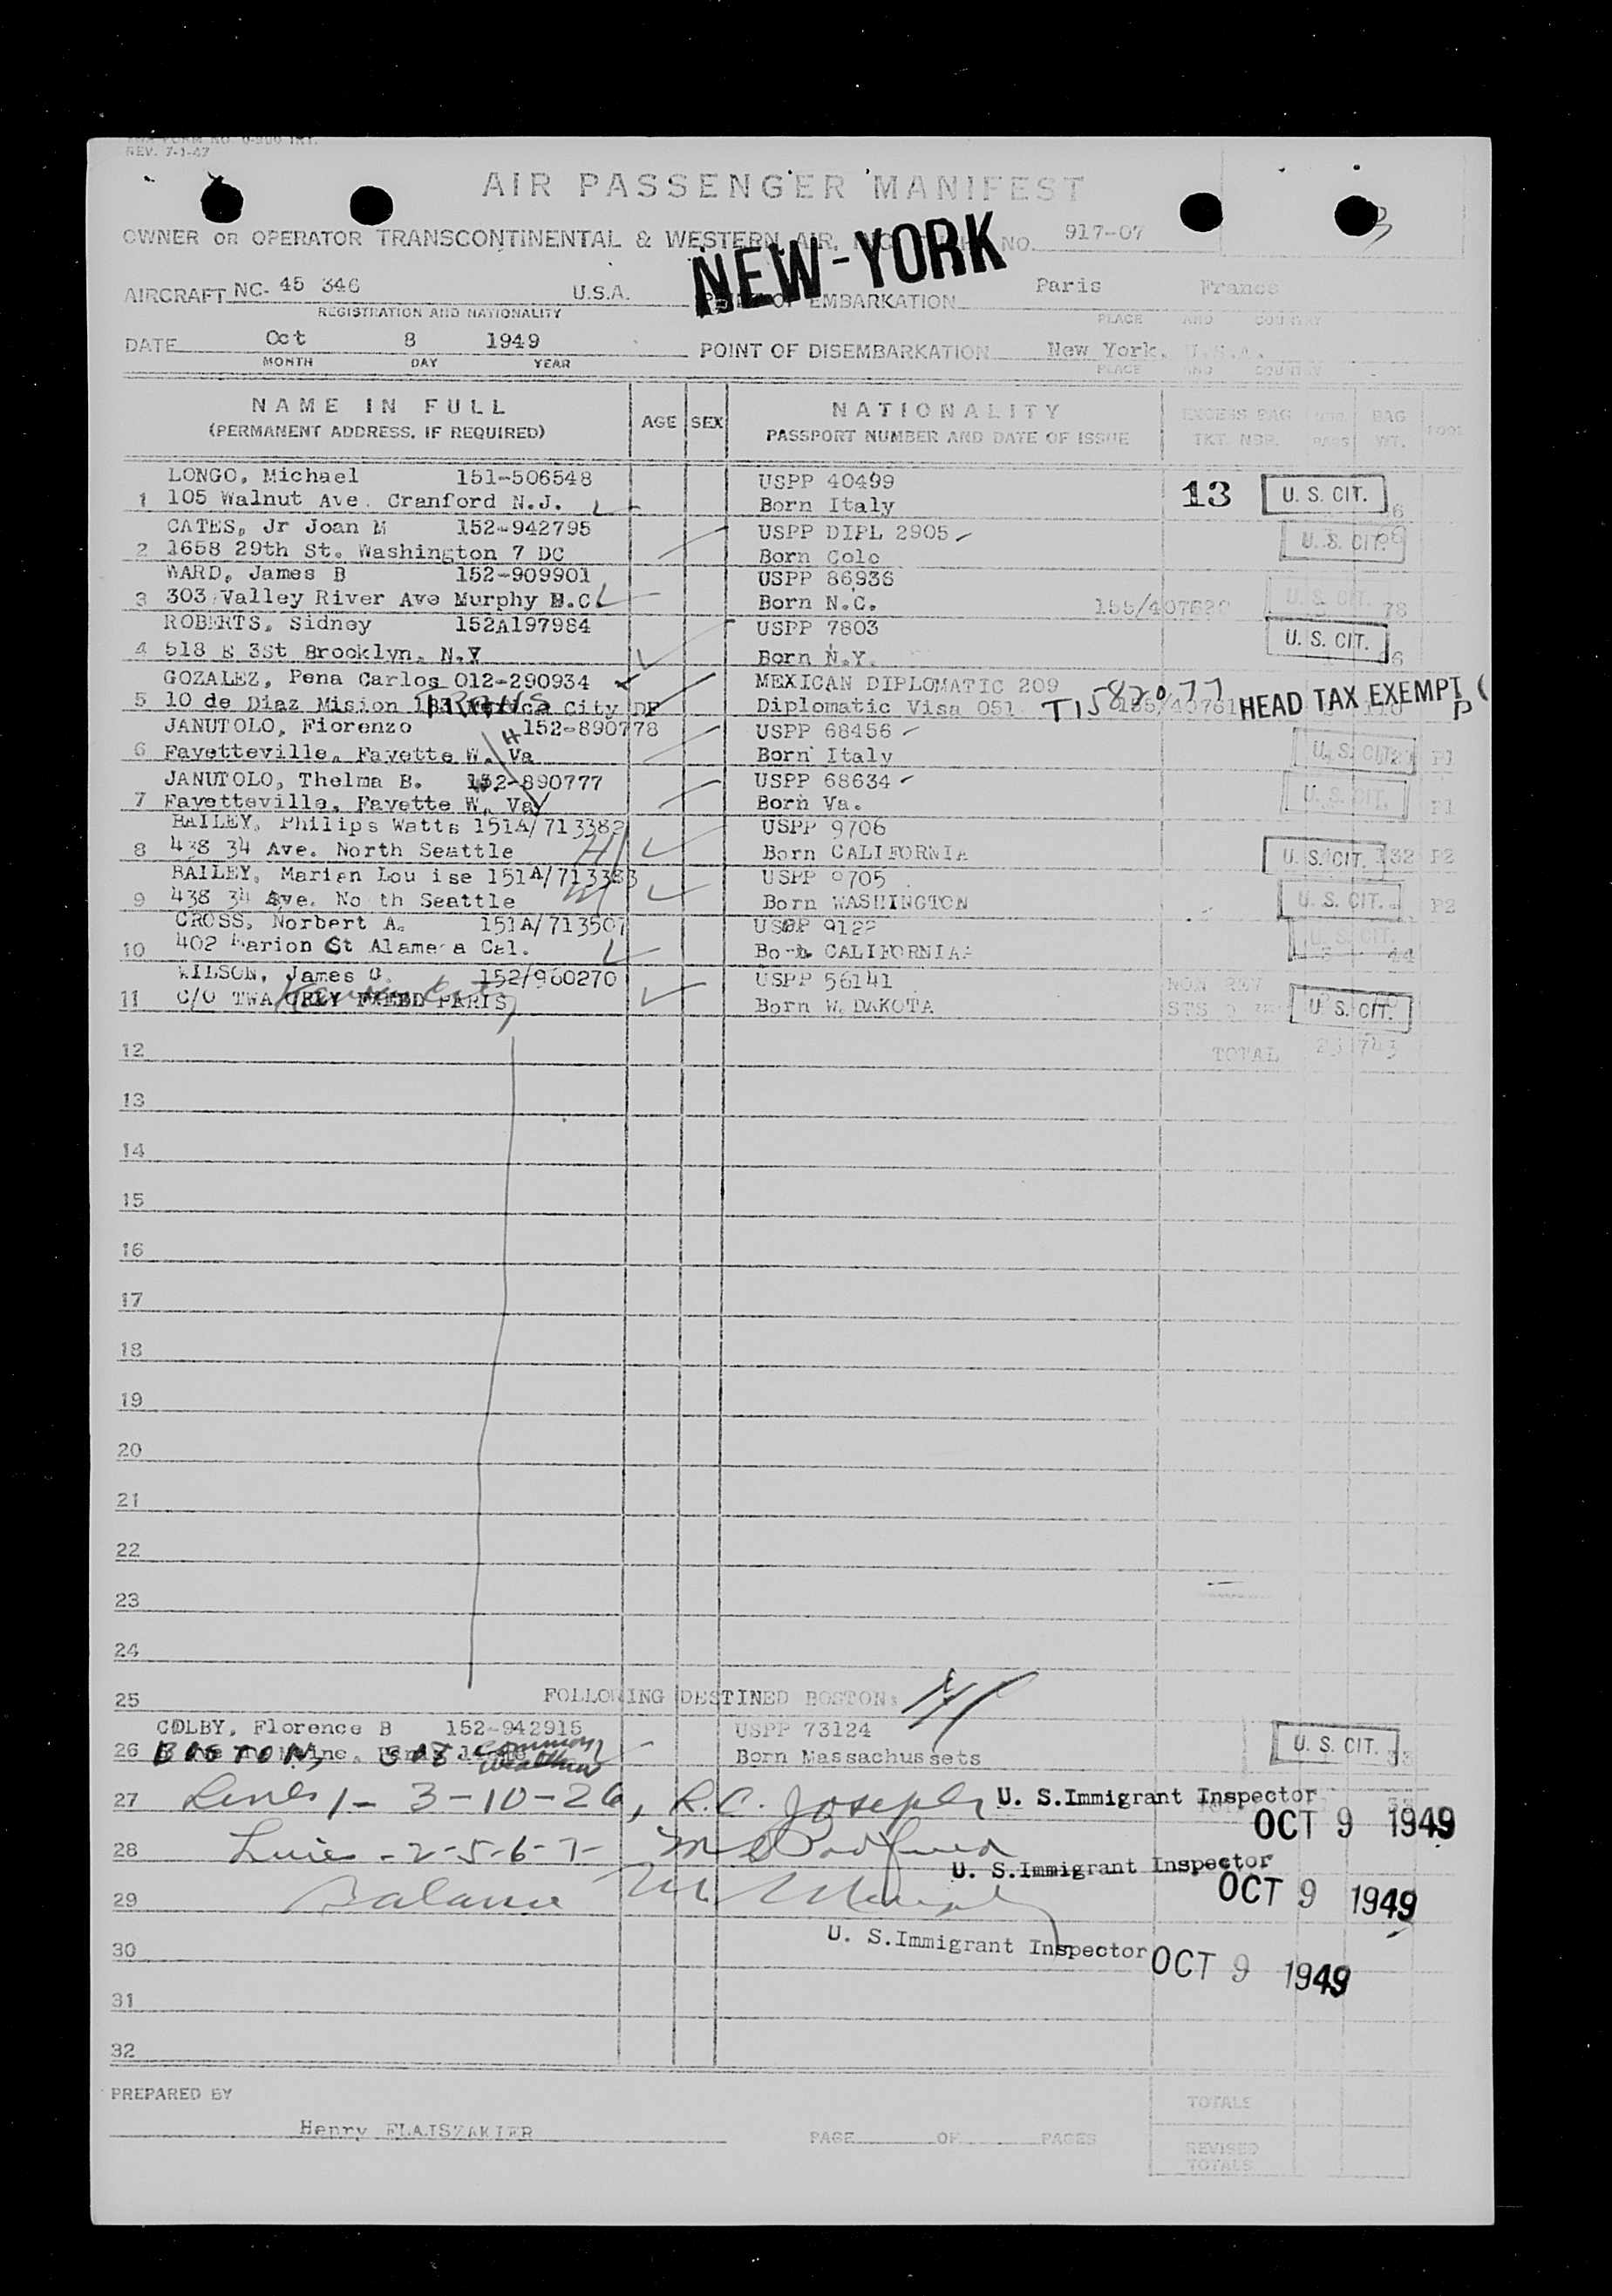 REV. 7-1-47
AIR PASSENGER MANIFEST
OWNER OR OPERATOR TRANSCONTINENTAL & WESTERN AIR, NO. 917-07
NEW-YORK
AIRCRAFT NC- 45 346 U.S.A. POINT OF EMBARKATION Paris France
REGISTRATION AND NATIONALITY PLACE AND COUNTRY
DATE Oct 8 1949 POINT OF DISEMBARKATION New York. U.S.A.
MONTH DAY YEAR PLACE AND COUNTRY
NAME IN FULL AGE SEX NATIONALITY EXCESS BAG BAG
(PERMANENT ADDRESS, IF REQUIRED) PASSPORT NUMBER AND DATE OF ISSUE TKT. NBR. WT.
LONGO, Michael 151-506548 USPP 40499
1 105 Walnut Ave. Cranford N.J. Born Italy 13 U. S. CIT.
CATES, Jr Joan M 152-942795 USPP DIPL 2905
2 1658 29th St. Washington 7 DC Born Colo U. S. CIT.
WARD, James B 152-909901 USPP 86936
3 303 Valley River Ave Murphy N.C. Born N.C. U. S. CIT. 78
ROBERTS, Sidney 152A197984 USPP 7803
4 518 E 3St Brooklyn, N.Y Born N.Y. U. S. CIT.
GOZALEZ, Pena Carlos 012-290934 MEXICAN DIPLOMATIC 209
5 10 de Diaz Mision City DF Diplomatic Visa 051 HEAD TAX EXEMPT
JANUTOLO, Fiorenzo H 152-890778 USPP 68456
6 Fayetteville, Fayette W. Va Born Italy U. S. CIT. P1
JANUTOLO, Thelma B. 152-890777 USPP 68634
7 Fayetteville, Fayette W. Va Born Va. U. S. CIT. P1
BAILEY, Philips Watts 151A/713382 USPP 9706
8 438 34 Ave. North Seattle H Born CALIFORNIA U. S. CIT. 132 P2
BAILEY, Marien Lou ise 151A/713383 USPP 9705
9 438 34 Ave. No th Seattle W Born WASHINGTON U. S. CIT. P2
CROSS, Norbert A. 151A/713507 USPP 9122
10 402 Marion St Alame a Cal. Born CALIFORNIA U. S. CIT. 44
WILSON, James G. 152/960270 USPP 56141 NON REV
11 C/O TWA ORLY FIELD PARIS Born W. DAKOTA U. S. CIT.
12 TOTAL 743
13
14
15
16
17
18
19
20
21
22
23
24
25 FOLLOWING DESTINED BOSTON:
COLBY, Florence B 152-942915 USPP 73124
26 BOSTON, 303 Commonwealth Born Massachussets U. S. CIT. 33
27 Lines 1- 3-10-26, R.C. Joseph U. S.Immigrant Inspector
OCT 9 1949
28 Lines - 2-5-6-7-
U. S.Immigrant Inspector
OCT 9 1949
29 Balance
U. S.Immigrant Inspector
30 OCT 9 1949
31
32
PREPARED BY
TOTALS
Henry FLAJSZAKIER PAGE OF PAGES
REVISED
TOTALS